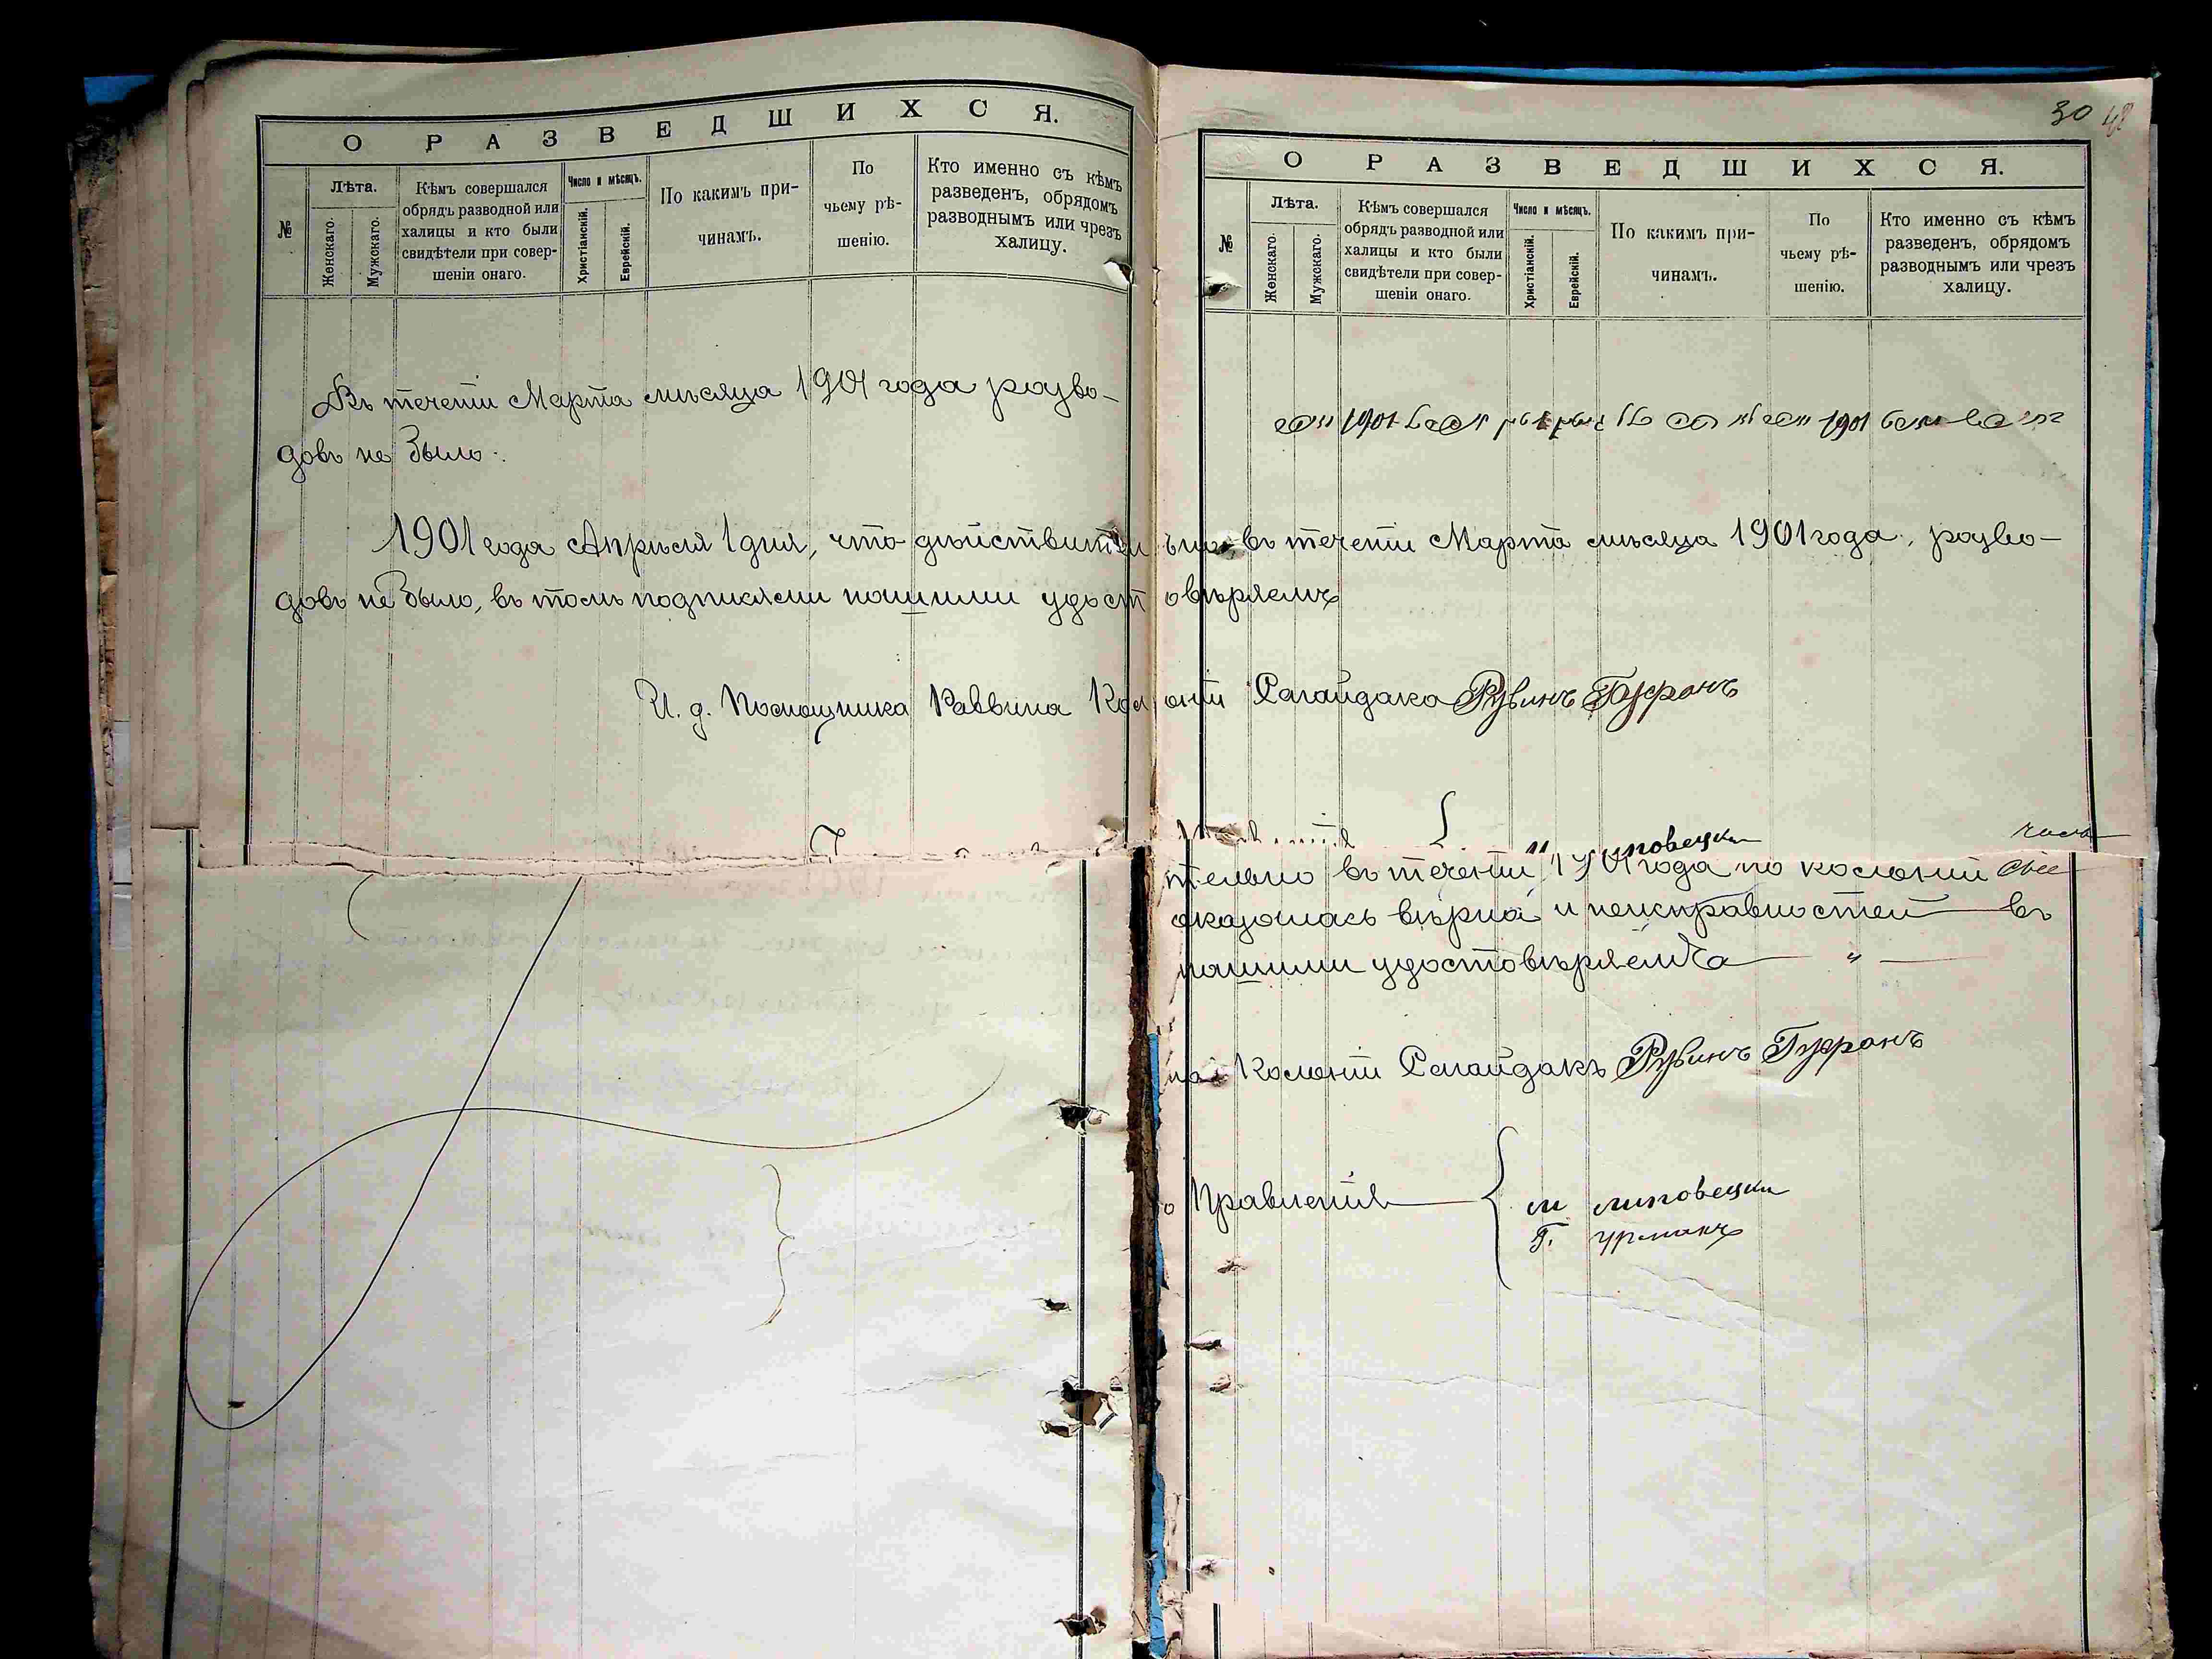 О РАЗВЕДШИХСЯ.
№
Лѣта.
Женскаго.
Мужскаго.
Кѣмъ совершался
обрядъ разводной или
халицы и кто были
свидѣтели при совер-
шеніи онаго.
Число и мѣсяцъ.
Христіанскій.
Еврейскій.
По какимъ при-
чинамъ.
По
чьему рѣ-
шенію.
Кто именно съ кѣмъ
разведенъ, обрядомъ
разводнымъ или чрезъ
халицу.
Въ течети Марта мѣсяца 1901 года разво-
довъ не было.
30 48
О РАЗВЕДШИХСЯ.
№
Лѣта.
Женскаго.
Мужскаго.
Кѣмъ совершался
обрядъ разводной или
халицы и кто были
свидѣтели при совер-
шеніи онаго.
Число и мѣсяцъ.
Христіанскій.
Еврейскій.
По какимъ при-
чинамъ.
По
чьему рѣ-
шенію.
Кто именно съ кѣмъ
разведенъ, обрядомъ
разводнымъ или чрезъ
халицу.
1901 1901
1901 года Апрѣля 1 дня, что дѣйствительно въ течети Марта мѣсяца 1901 года, разво-
довъ не было, въ томъ подписями нашими удостовѣряемъ
И. д. Помощника Раввина Колоніи Сагайдака Рувинъ
липовецки
тельно въ течении 1901 года по колоніи
оказалась вѣрна и неисправностей въ
нашими удостовѣряемъ
на Колоніи Сагайдакъ Рувинъ
Правленія
м липовецки
Г. Урманъ